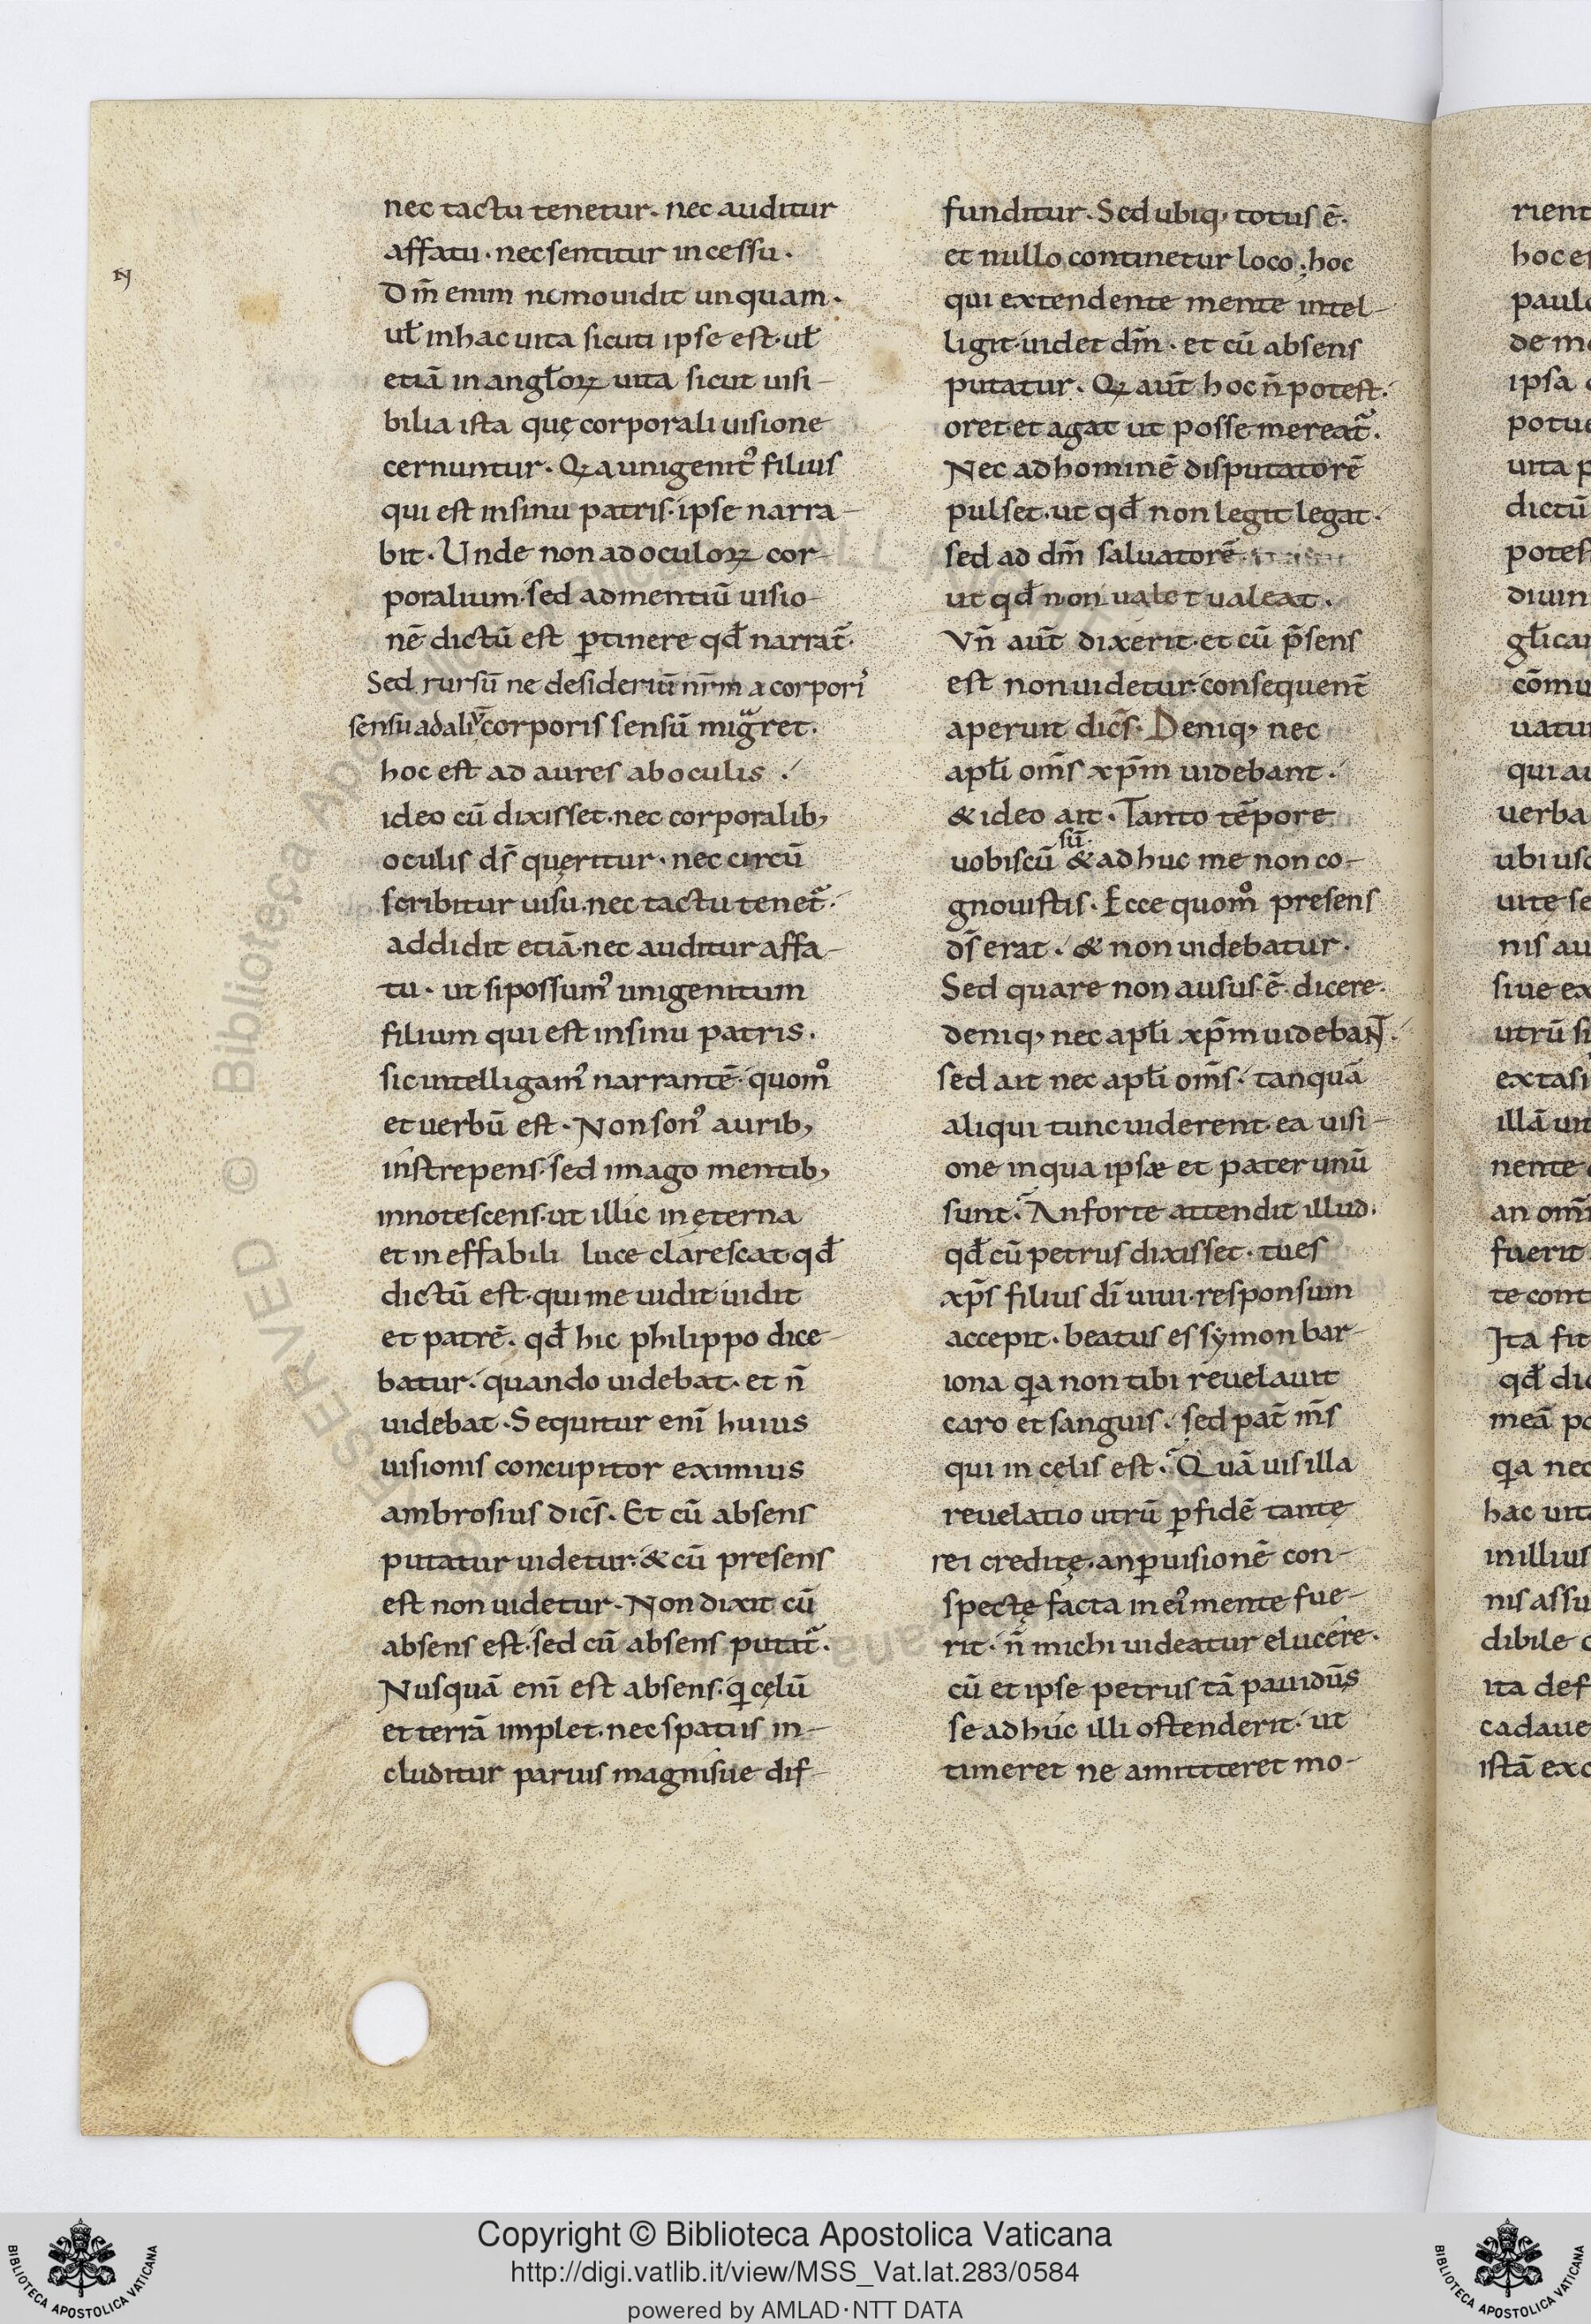 nec tactu tenetur. nec auditur
affatu. nec sentitur incessu.
Dm̄ enim nemo uidit unquam.
ul̄ in hac uita sicuti ipse est. ul̄
etiā in angl̄oꝝ uita sicut uisi-
bilia ista quę corporali uisione
cernuntur. Qꝛ a unigenit᾿ filius
qui est in sinu patris. ipse narra-
bit. Unde non ad oculoꝝ cor-
poralium. sed ad mentiū uisio-
nē dictū est ꝑtinere qd̄ narrat᷑.
Sed rursū ne desideriū nr̄m a corpori᾿
sensu ad aliv̄ corporis sensū migͣret.
hoc est ad aures ab oculis.
ideo cū dixisset. nec corporalib;
oculis ds̄ quęritur. nec circū
scribitur uisu. nec tactu tenet᷑.
addidit etiā. nec auditur affa-
tu. ut si possum᾿ unigenitum
filium qui est in sinu patris.
sic intelligam᾿ narrantē. quom̊
et uerbū est. Non son᾿ aurib;
instrepens. sed imago mentib;
innotescens. ut illic in ęterna
et ineffabili luce clarescat qd̄
dictū est. qui me uidit uidit
et patrē. qd̄ hic philippo dice-
batur. quando uidebat. et n̄
uidebat. Sequitur enī huius
uisionis concupitor eximius
ambrosius dicēs. Et cū absens
putatur uidetur. & cū presens
est non uidetur. Non dixit cū
absens est. sed cū absens putat᷑.
Nusquā enī est absens. q̄ cęlū
et terrā implet. nec spatiis in-
cluditur paruis magnisue dif-
funditur. Sed ubiq; totus ē.
et nullo continetur loco; hoc
qui extendente mente intel-
ligit. uidet dm̄. et cū absens
putatur. Qꝛ aut̄ hoc n̄ potest.
oret. et agat ut posse mereat᷑.
Nec ad hominē disputatorē
pulset. ut qd̄ non legit legat.
sed ad dm̄ saluatorē.
ut qd̄ non ualet ualeat.
Vn̄ aut̄ dixerit. et cū p̄sens
est non uidetur. consequent̄
aperuit dicēs. Deniq; nec
apl̄i om̄s xp̄m uidebant.
& ideo ait. Tanto tēpore
sū
uobiscū & adhuc me non co-
gnouistis. Ecce quom̊ presens
ds̄ erat. & non uidebatur.
Sed quare non ausus ē dicere.
deniq; nec apl̄i xp̄m uidebant.
sed ait nec apl̄i om̄s. tanquā
aliqui tunc uiderent ea uisi-
one in qua ipsæ et pater unū
sunt. An forte attendit illud.
qd̄ cū petrus dixisset. tu es
xp̄s filius dī uiui. responsum
accepit. beatus es symon bar-
iona q̄a non tibi reuelauit
caro et sanguis. sed pat̄ m̄s
qui in cęlis est. Quā uis illa
reuelatio utrū ꝑ fidē tantę
rei creditę. an ꝑ uisionē con-
spectę facta in ei᾿ mente fue-
rit. n̄ michi uideatur elucere.
cū et ipse petrus tā pauidūs
se adhuc illi ostenderit. ut
timeret ne amitteret mo-
rient
hoc e
paulo
de m
ipsa
potue
uita p
dictū
potes
diuin
gl̄ica
cōmu
uatu
qui a
uerba
ubi us
uite se
nis au
siue ex
utrū si
extasi
illā un
nente
an omī
fuerit
te cont
Ita fit
qd̄ dic
meā po
q̄a nec
hac uita
in illius
nis assu
dibile
ita def
cadaue
istā exc
Copyright © Biblioteca Apostolica Vaticana
http://digi.vatlib.it/view/MSS_Vat.lat.283/0584
powered by AMLAD·NTT DATA
BIBLIOTECA APOSTOLICA VATICANA
BIBLIOTECA APOSTOLICA VATICANA